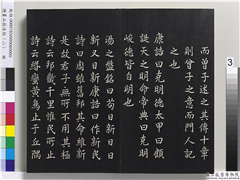 而曾子述之其傳十章
則曾子之意而門人記
之也
康誥曰克明德太甲曰顧
諟天之明命帝典曰克明
峻德皆自明也
湯之盤銘曰苟日新日日
新又日新康誥曰作新民
詩曰周雖舊邦其命惟新
是故君子無所不用其極
詩云邦畿千里惟民所止
詩云緡蠻黃鳥止于丘隅
3